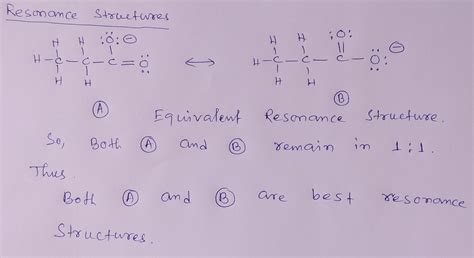 Resonance Structures
H H :Ö: ⊖ H H :O:
H-C-C-C=Ö ↔ H-C-C-C-Ö: ⊖
H H H H
Ⓐ Ⓑ
Equivalent Resonance Structure.
So, Both Ⓐ and Ⓑ remain in 1:1.
Thus.
Both Ⓐ and Ⓑ are best resonance
Structures.